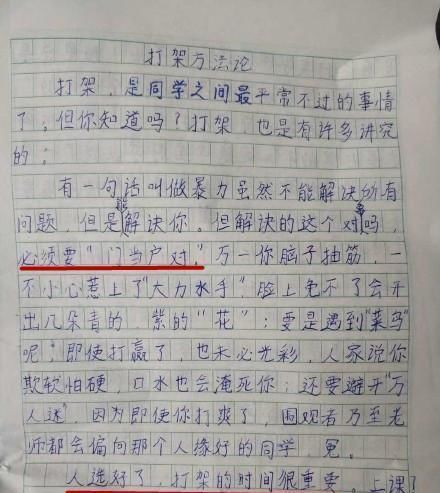 打架方法论
打架，是同学之间最平常不过的事情
了，但你知道吗？打架，也是有许多讲究
的：
有一句话叫做暴力虽然不能解决所有
问题，但是能解诀你。但解诀的这个对象吗，
必须要“门当户对。”万一你脑子抽筋，一
不小心惹上了“大力水手”，脸上免不了会开
出几朵青的、紫的“花”；要是遇到“菜鸟”
呢；即使打赢了，也未必光彩，人家说你
欺软怕硬，口水也会淹死你；还要避开“万
人迷”，因为即使你打爽了，围观者乃至老
师都会偏向那个人缘好的同学，冤。
人选好了，打架的时间很重要。上课！